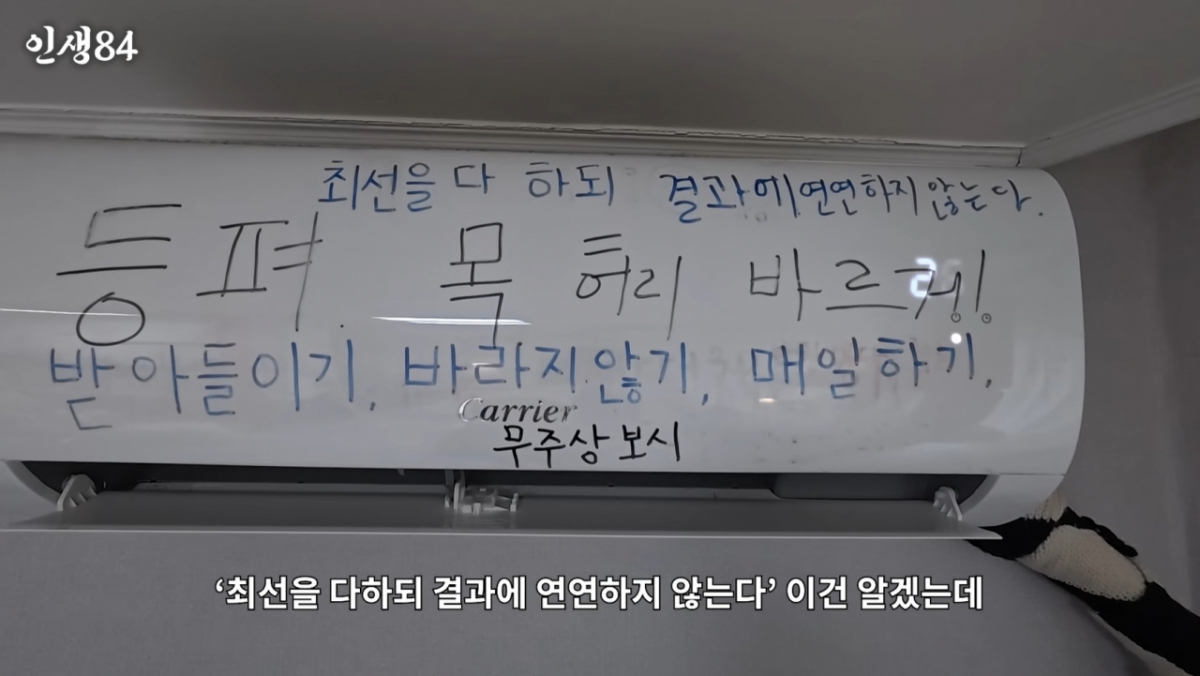 인생84
최선을 다 하되 결과에 연연하지 않는다.
등 펴 목 허리 바르게!
받아들이기. 바라지 않기, 매일하기,
Carrier
무주상 보시
‘최선을 다하되 결과에 연연하지 않는다’ 이건 알겠는데